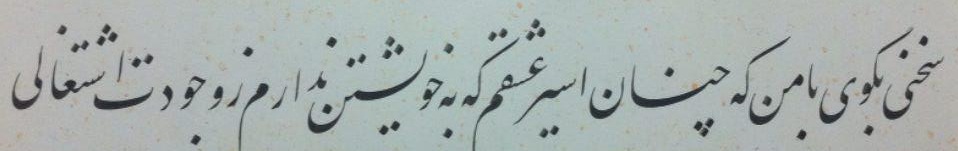 سخنی بگوی با من که چنان اسیر عشقم که به خویشتن ندارم ز وجودت اشتغالی